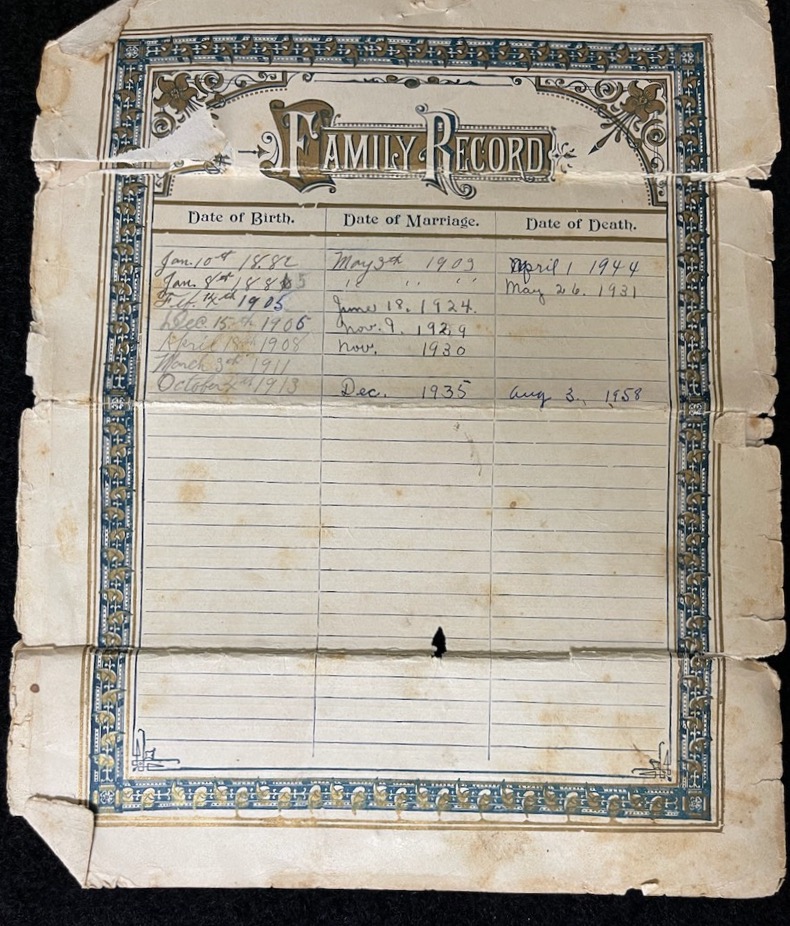 FAMILY RECORD
Date of Birth. Date of Marriage. Date of Death.
Jan. 10th 1882 May 3th 1903 April 1 1944
Jan. 8th 188 5 " " " " May 26. 1931
14th 1905 June 18, 1924.
Dec. 15th 1906 Nov. 9, 1929
April 1908 Nov. 1930
March 3rd 1911
October 1913 Dec. 1935 Aug 3., 1958